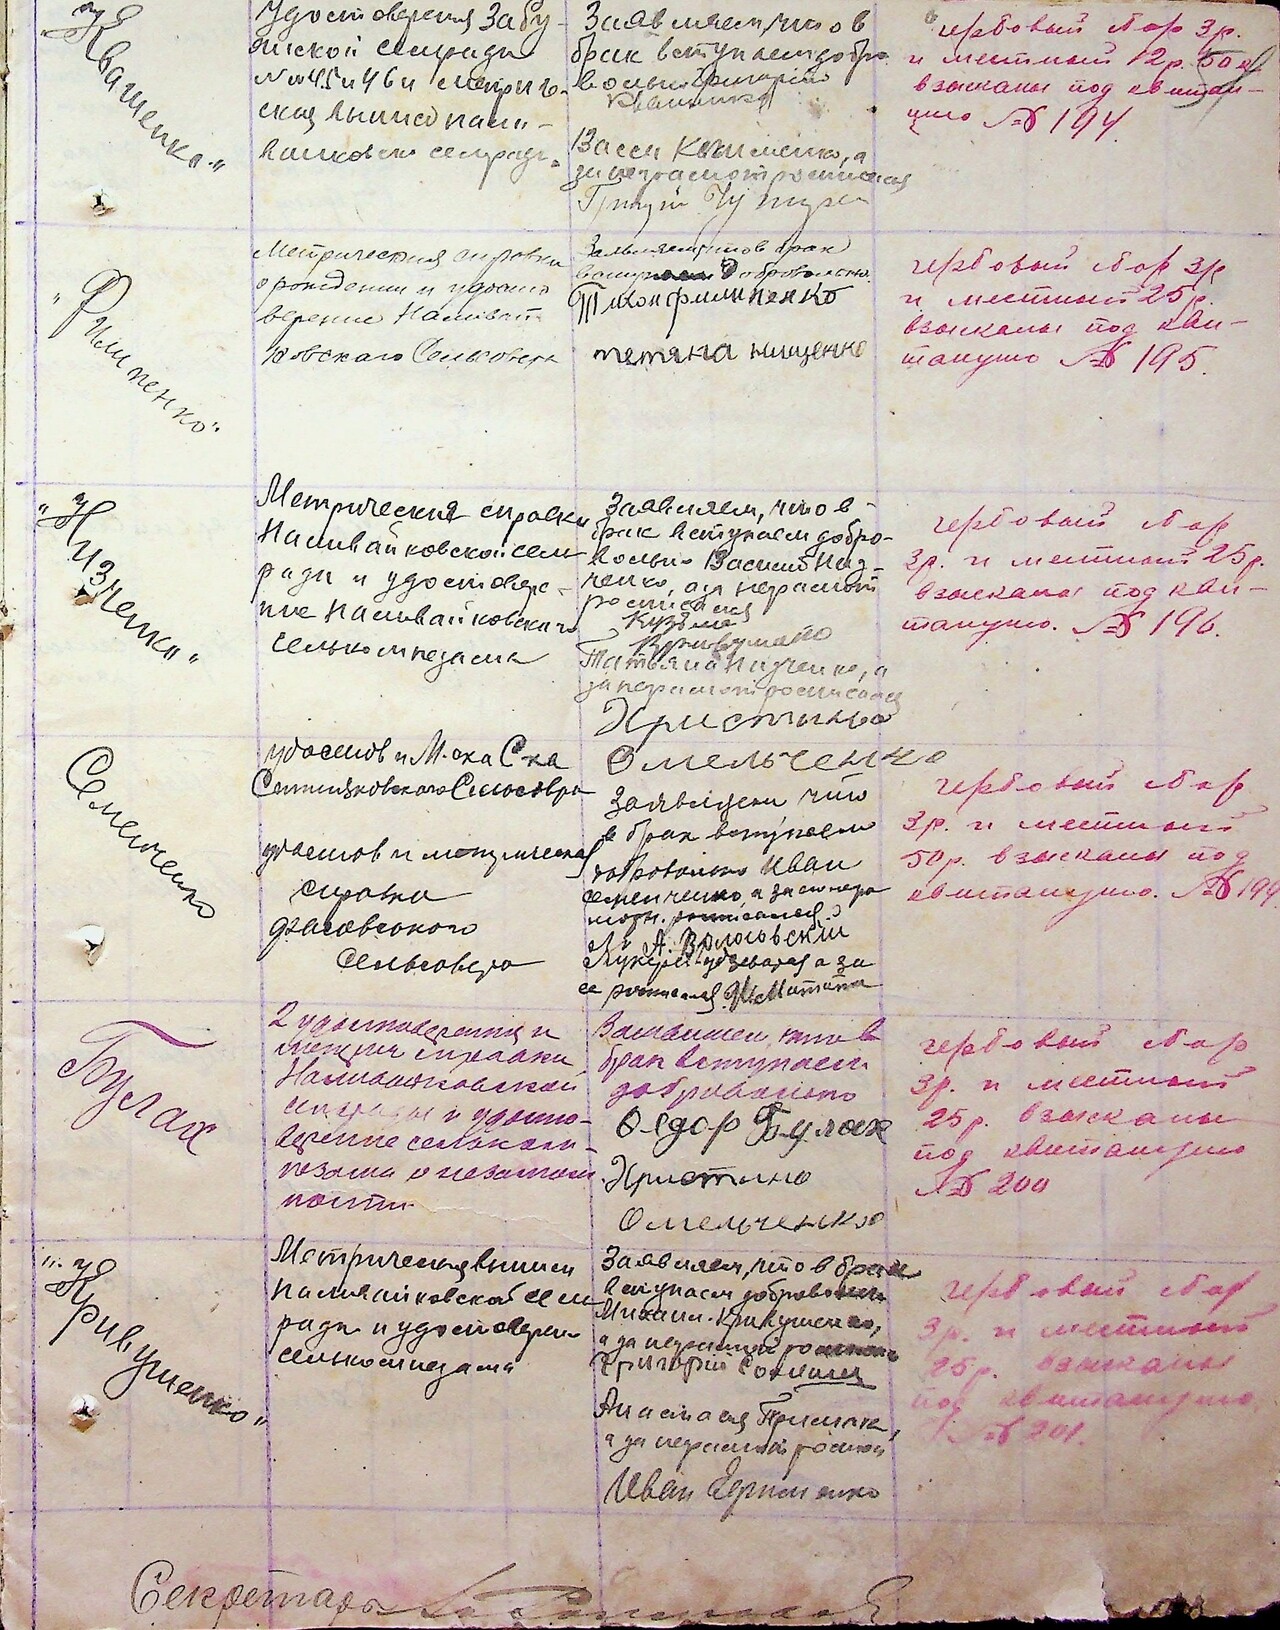 "Кващенко"
Удостоверения Забу-
янской сельради
№№45 и 46 и метриче-
ская выписка
сельради
Заявляем, что в
брак вступаем добро
вольно Григорий
Кващенко
Васса Клименко, а
за неграмот росписался
Грицай
гербовый сбор 3р.
и местный 12р. 50 к.
взысканы под квитан-
цию № 194
"Филипенко"
Метрическия справки
о рождении и удосто
верение Наливай
ковского Сельсовета
Заявляем что в брак
вступаем добровольно
Тихон филипенко
тетяна нищенко
гербовый сбор 3р
и местный 25р.
взысканы под кви-
танцию № 195.
"Низченко"
Метрическия справки
Наливайковской сель
ради и удостовере-
ние Наливайковскаго
селькомнезама
Заявляем, что в-
брак вступаем добро-
вольно Василий Низ-
ченко, а за неграмот
росписался
Кузьма
Кривушенко
Татьяна Низченко, а
за неграмот росписалась
Христина
Омельченко
гербовый сбор
3р. и местный 25р.
взысканы под кви-
танцию. № 196.
Семенченко
удостов и М-ска С-ка
Ситняковского Сельсовета
удостов и метрическая
справка
Сельсовета
Заявляем что
в брак вступаем
добровольно Иван
Семенченко, а за него негра
мотн. росписался
А. Врлосовский
а за
ее росписался
гербовый сбор
3р. и местный
50р. взысканы под
квитанцию. № 199
Булах
2 удостоверения и
метрич справки
Наливайковской
сельради и удосто-
верение селькомн-
незама о незамож
ности
Заявляем, что в
брак вступаем
добровольно
Федор Булах
Христина
Омельченко
гербовый сбор
3р. и местный
25р. взысканы
под квитанцию
№ 200
"Кривушенко"
Метрическия выписи
Наливайковской сель
ради и удостоверен
селькомнезама
Заявляем, что в брак
вступаем добровольно
Михаил Кривушенко,
а за неграмот росписался
Григорий
Анастасия Примак,
а за неграмот росписал
Иван Ефименко
гербовый сбор
3р. и местный
25р. взысканы
под квитанцию
№ 201.
Секретарь